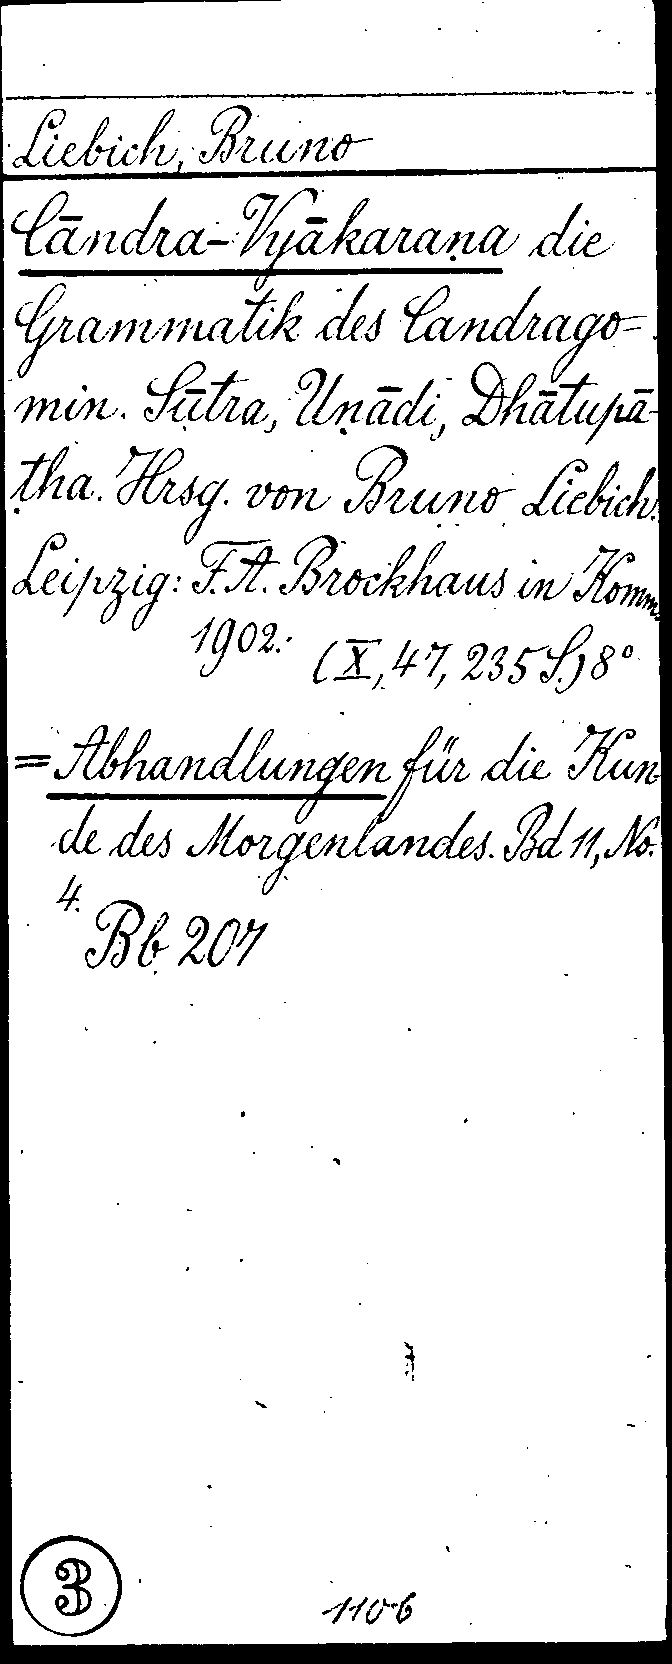 Liebich, Bruno
Cāndra-Vyākaraṇa die
Grammatik des Candrago=
min. Sūtra, Uṇādi, Dhātupā-
ṭha. Hrsg. von Bruno Liebich.
Leipzig: F. A. Brockhaus in Komm.
1902. (X, 47, 235 S.) 8°
= Abhandlungen für die Kun-
de des Morgenlandes. Bd 11, No.
4.
Bb 207
3
1106